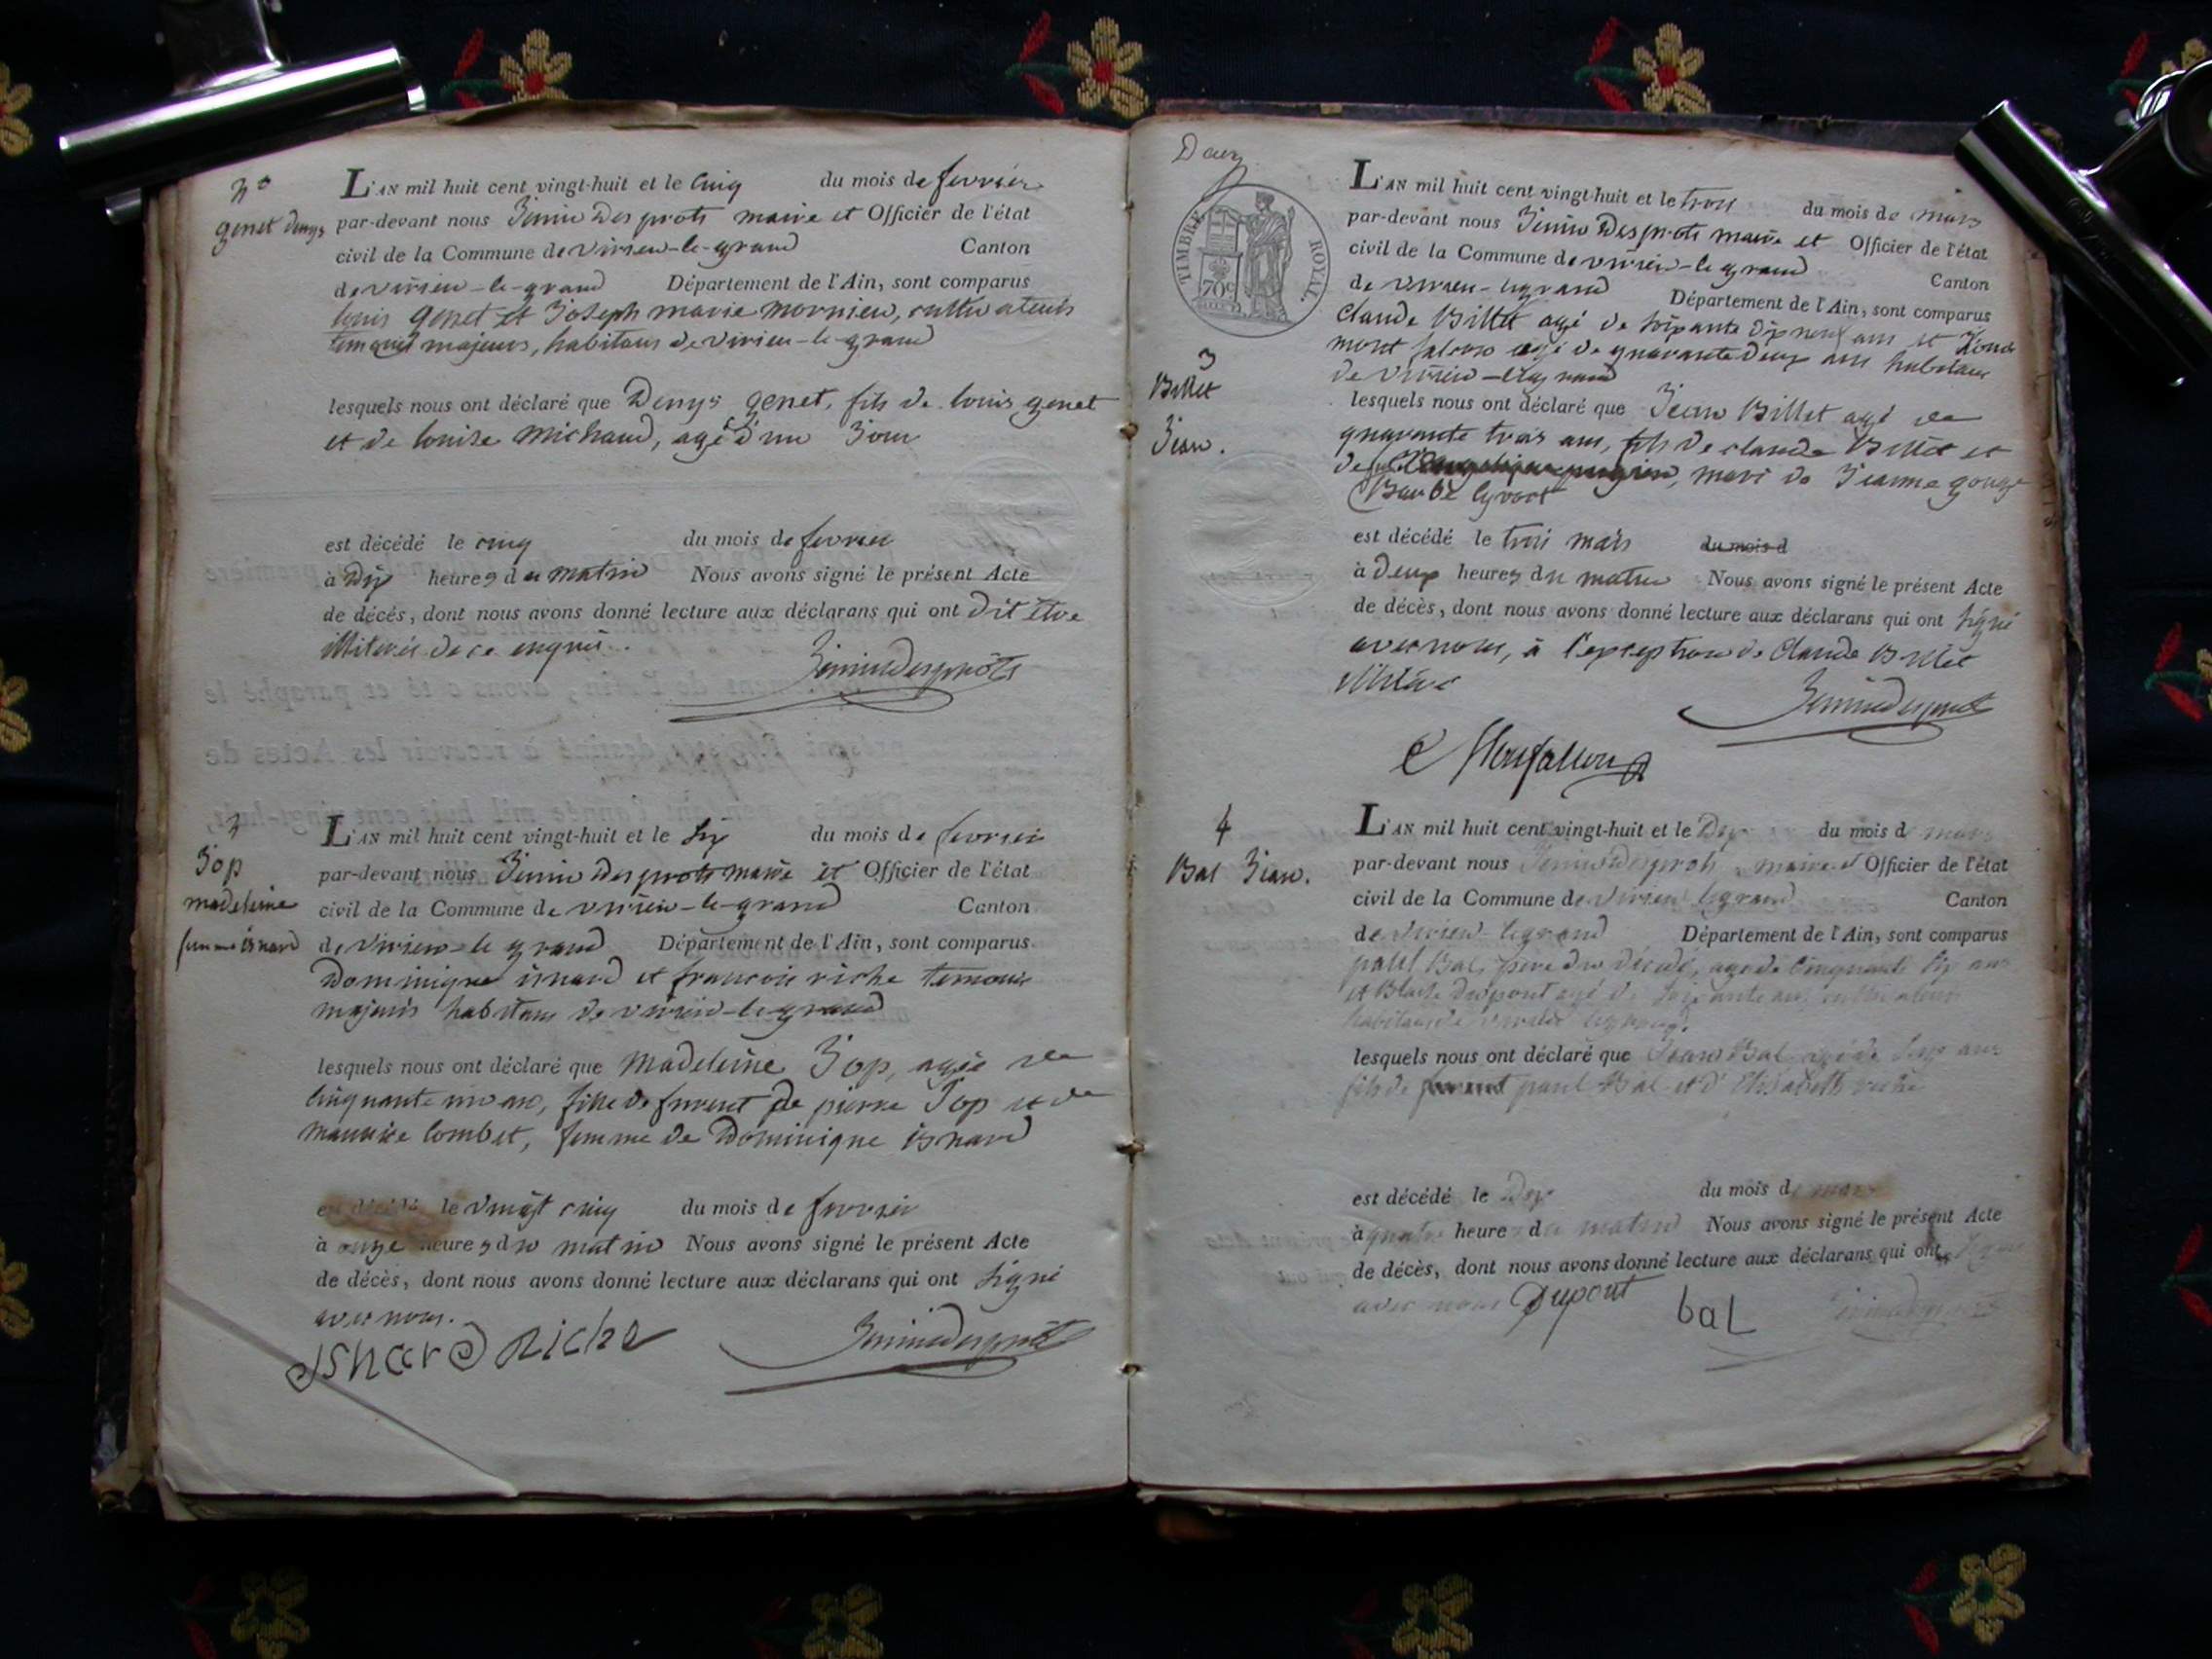 genet denys
L'AN mil huit cent vingt-huit et le cinq du mois de fevrier
par-devant nous Jenin Desprots maire et Officier de l'état
civil de la Commune de virieu-le-grand Canton
de virieu-le-grand Département de l'Ain, sont comparus
louis genet et Joseph marie mornieu, cultivateurs
majeurs, habitans de virieu-le-grand
lesquels nous ont déclaré que Denys genet, fils de louis genet
et de louise michaud, agé d'un Jour
est décédé le cinq du mois de fevrier
à Dix heures du matin Nous avons signé le présent Acte
de décès, dont nous avons donné lecture aux déclarans qui ont dit être
illiterés de ce enquis.
Jenindesprots
Jop
madeleine
femme isnard
L'AN mil huit cent vingt-huit et le six du mois de fevrier
par-devant nous Jenin Desprots maire et Officier de l'état
civil de la Commune de virieu-le-grand Canton
de virieu-le grand Département de l'Ain, sont comparus
Dominique isnard et francois riche temoins
majeurs habitans de virieu-le-grand
lesquels nous ont déclaré que madeleine Jop, agée de
cinquante un an, fille de furent de pierre Jop et de
maurice combet, femme de Dominique isnard
est décédé le vingt cinq du mois de fevrier
à onze heures du matin Nous avons signé le présent Acte
de décès, dont nous avons donné lecture aux déclarans qui ont signé
avec nous.
isnard Riche Jenindesprots
Deux
TIMBRE ROYAL.
70c
3
Billet
Jean.
L'AN mil huit cent vingt-huit et le trois du mois de mars
par-devant nous Jenin Desprots maire et Officier de l'état
civil de la Commune de virieu-le grand Canton
de virieu-legrand Département de l'Ain, sont comparus
Claude Billet agé de soixante dix neuf ans et
mont falcon agé de quarante deux ans habitans
de virieu-legrand
lesquels nous ont déclaré que Jean Billet agé de
quarante trois ans, fils de claude Billet et
de mari de Jeanne gouge
est décédé le trois mars du mois d
à Deux heures du matin Nous avons signé le présent Acte
de décès, dont nous avons donné lecture aux déclarans qui ont signé
avec nous, à l'exception de Claude Billet
illiteré
Jenindesprots
4
Bal Jean.
L'AN mil huit cent vingt-huit et le Dix du mois de mars
par-devant nous Jenin Desprots maire et Officier de l'état
civil de la Commune de virieu legrand Canton
de virieu-legrand Département de l'Ain, sont comparus
Bal, pere du décédé, agé de cinquante six ans
et Dupont agé de soixante ans cultivateurs
habitans de virieu legrand.
lesquels nous ont déclaré que Jean Bal agé de ans
fils de paul Bal et d'Elisabeth riche
est décédé le Dix du mois de mars
à quatre heures du matin Nous avons signé le présent Acte
de décès, dont nous avons donné lecture aux déclarans qui ont signé
avec nous Dupont bal Jenindesprots